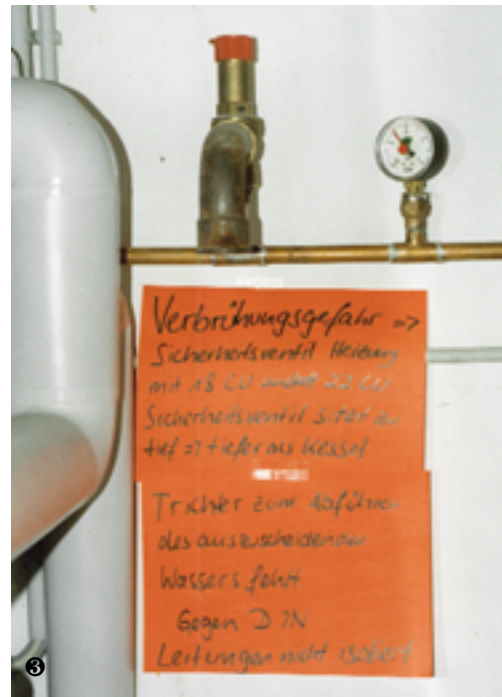 Verbrühungsgefahr =>
Sicherheitsventil Heizung
mit 18 CU anstatt 22 CU
Sicherheitsventil sitzt zu
tief => tiefer als Kessel
Trichter zum Abführen
des
Wassers fehlt
Gegen DIN
Leitungen nicht isoliert
3